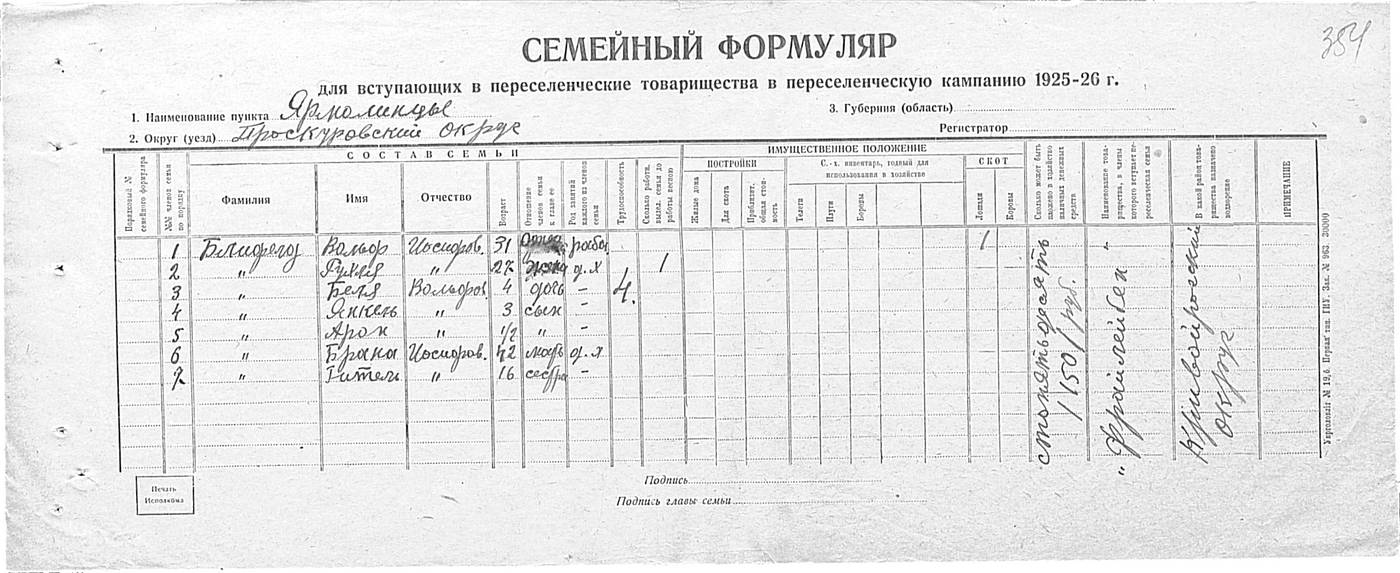 354
СЕМЕЙНЫЙ ФОРМУЛЯР
для вступающих в переселенческие товарищества в переселенческую кампанию 1925-26 г.
1. Наименование пункта Ярмолинцы 3. Губерния (область)
2. Округ (уезд) Проскуровский округ Регистратор
Порядковый № семейного формуляра
№№ членов семьи по порядку
СОСТАВ СЕМЬИ
Фамилия
Имя
Отчество
Возраст
Отношение членов семьи к главе ее
Род занятий каждого из членов семьи
Трудоспособность
Сколько работн. выдел. семья до работы весною
ИМУЩЕСТВЕННОЕ ПОЛОЖЕНИЕ
ПОСТРОЙКИ
Жилые дома
Для скота
Приблизит. общая стоимость
С.-х. инвентарь, годный для использования в хозяйстве
Телеги
Плуги
Бороны
СКОТ
Лошади
Коровы
Сколько может быть вложено в хозяйство наличных денежных средств
Наименование товарищества, в члены которого вступает переселенческая семья
В какой район товарищества назначено водворение
ПРИМЕЧАНИЕ
1 Вольф Иосифов. 31 1
2 " " 27 жена д. х 1
3 " Бейля Вольфов. 4 дочь - 4.
4 " Янкель " 3 сын -
5 " Арон " 1/2 " -
6 " Брана Иосифов. 42 мать д. х
7 " Гитель " 16 сестра -
сто пятьдесят
/150/ руб.
"Фрайлейбен"
Криворожский
округ
Укрголовліт № 19,6. Первая тип. ГИУ. Зак. № 963. 30000
Печать
Исполкома
Подпись
Подпись главы семьи